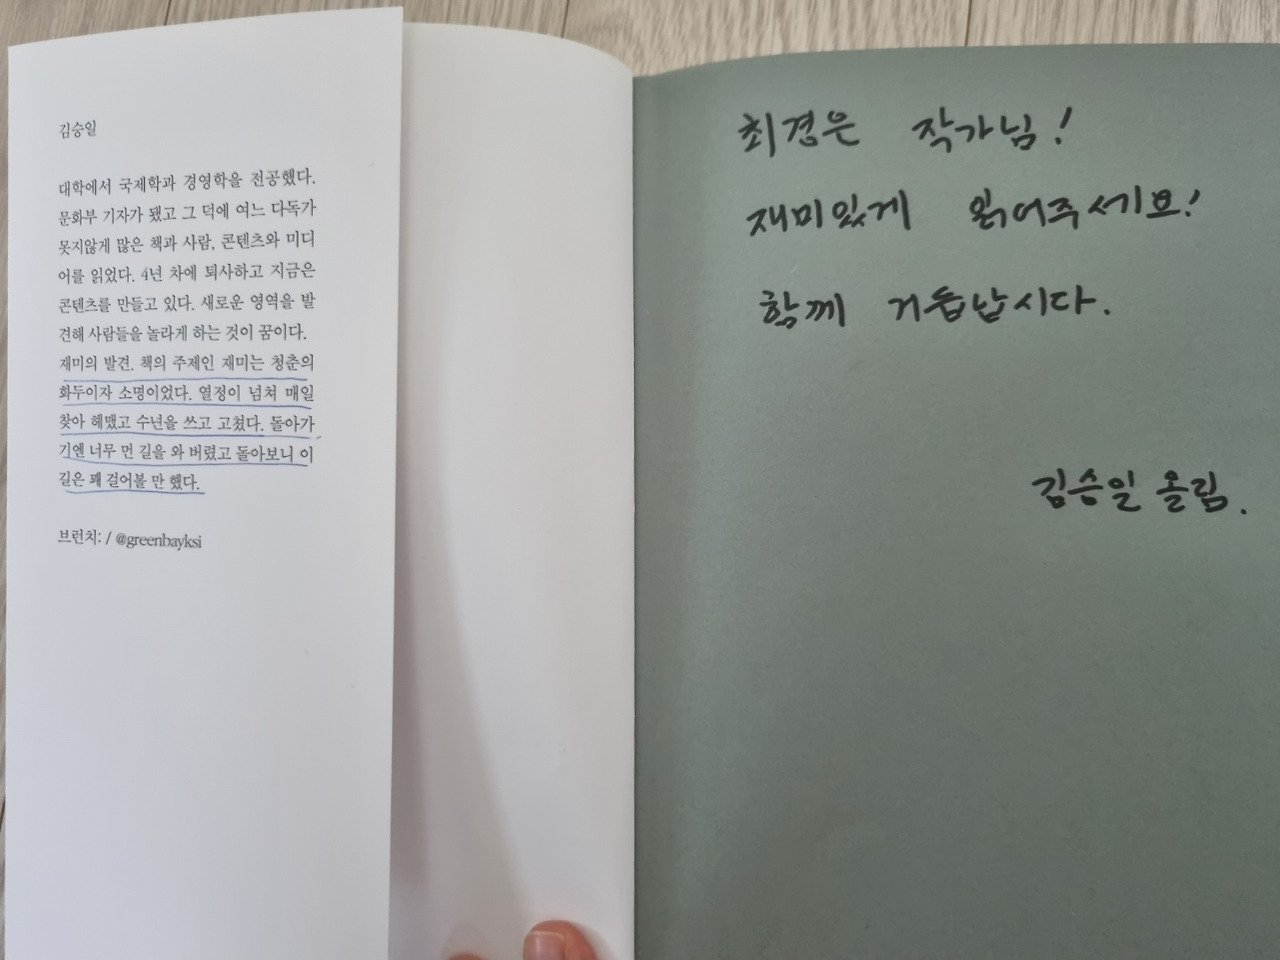 김승일
대학에서 국제학과 경영학을 전공했다.
문화부 기자가 됐고 그 덕에 여느 다독가
못지않게 많은 책과 사람, 콘텐츠와 미디
어를 읽었다. 4년 차에 퇴사하고 지금은
콘텐츠를 만들고 있다. 새로운 영역을 발
견해 사람들을 놀라게 하는 것이 꿈이다.
재미의 발견. 책의 주제인 재미는 청춘의
화두이자 소명이었다. 열정이 넘쳐 매일
찾아 헤맸고 수년을 쓰고 고쳤다. 돌아가
기엔 너무 먼 길을 와 버렸고 돌아보니 이
길은 꽤 걸어볼 만 했다.
브런치: / @greenbayksi
최경은 작가님!
재미있게 읽어주세요!
함께 거듭납시다.
김승일 올림.